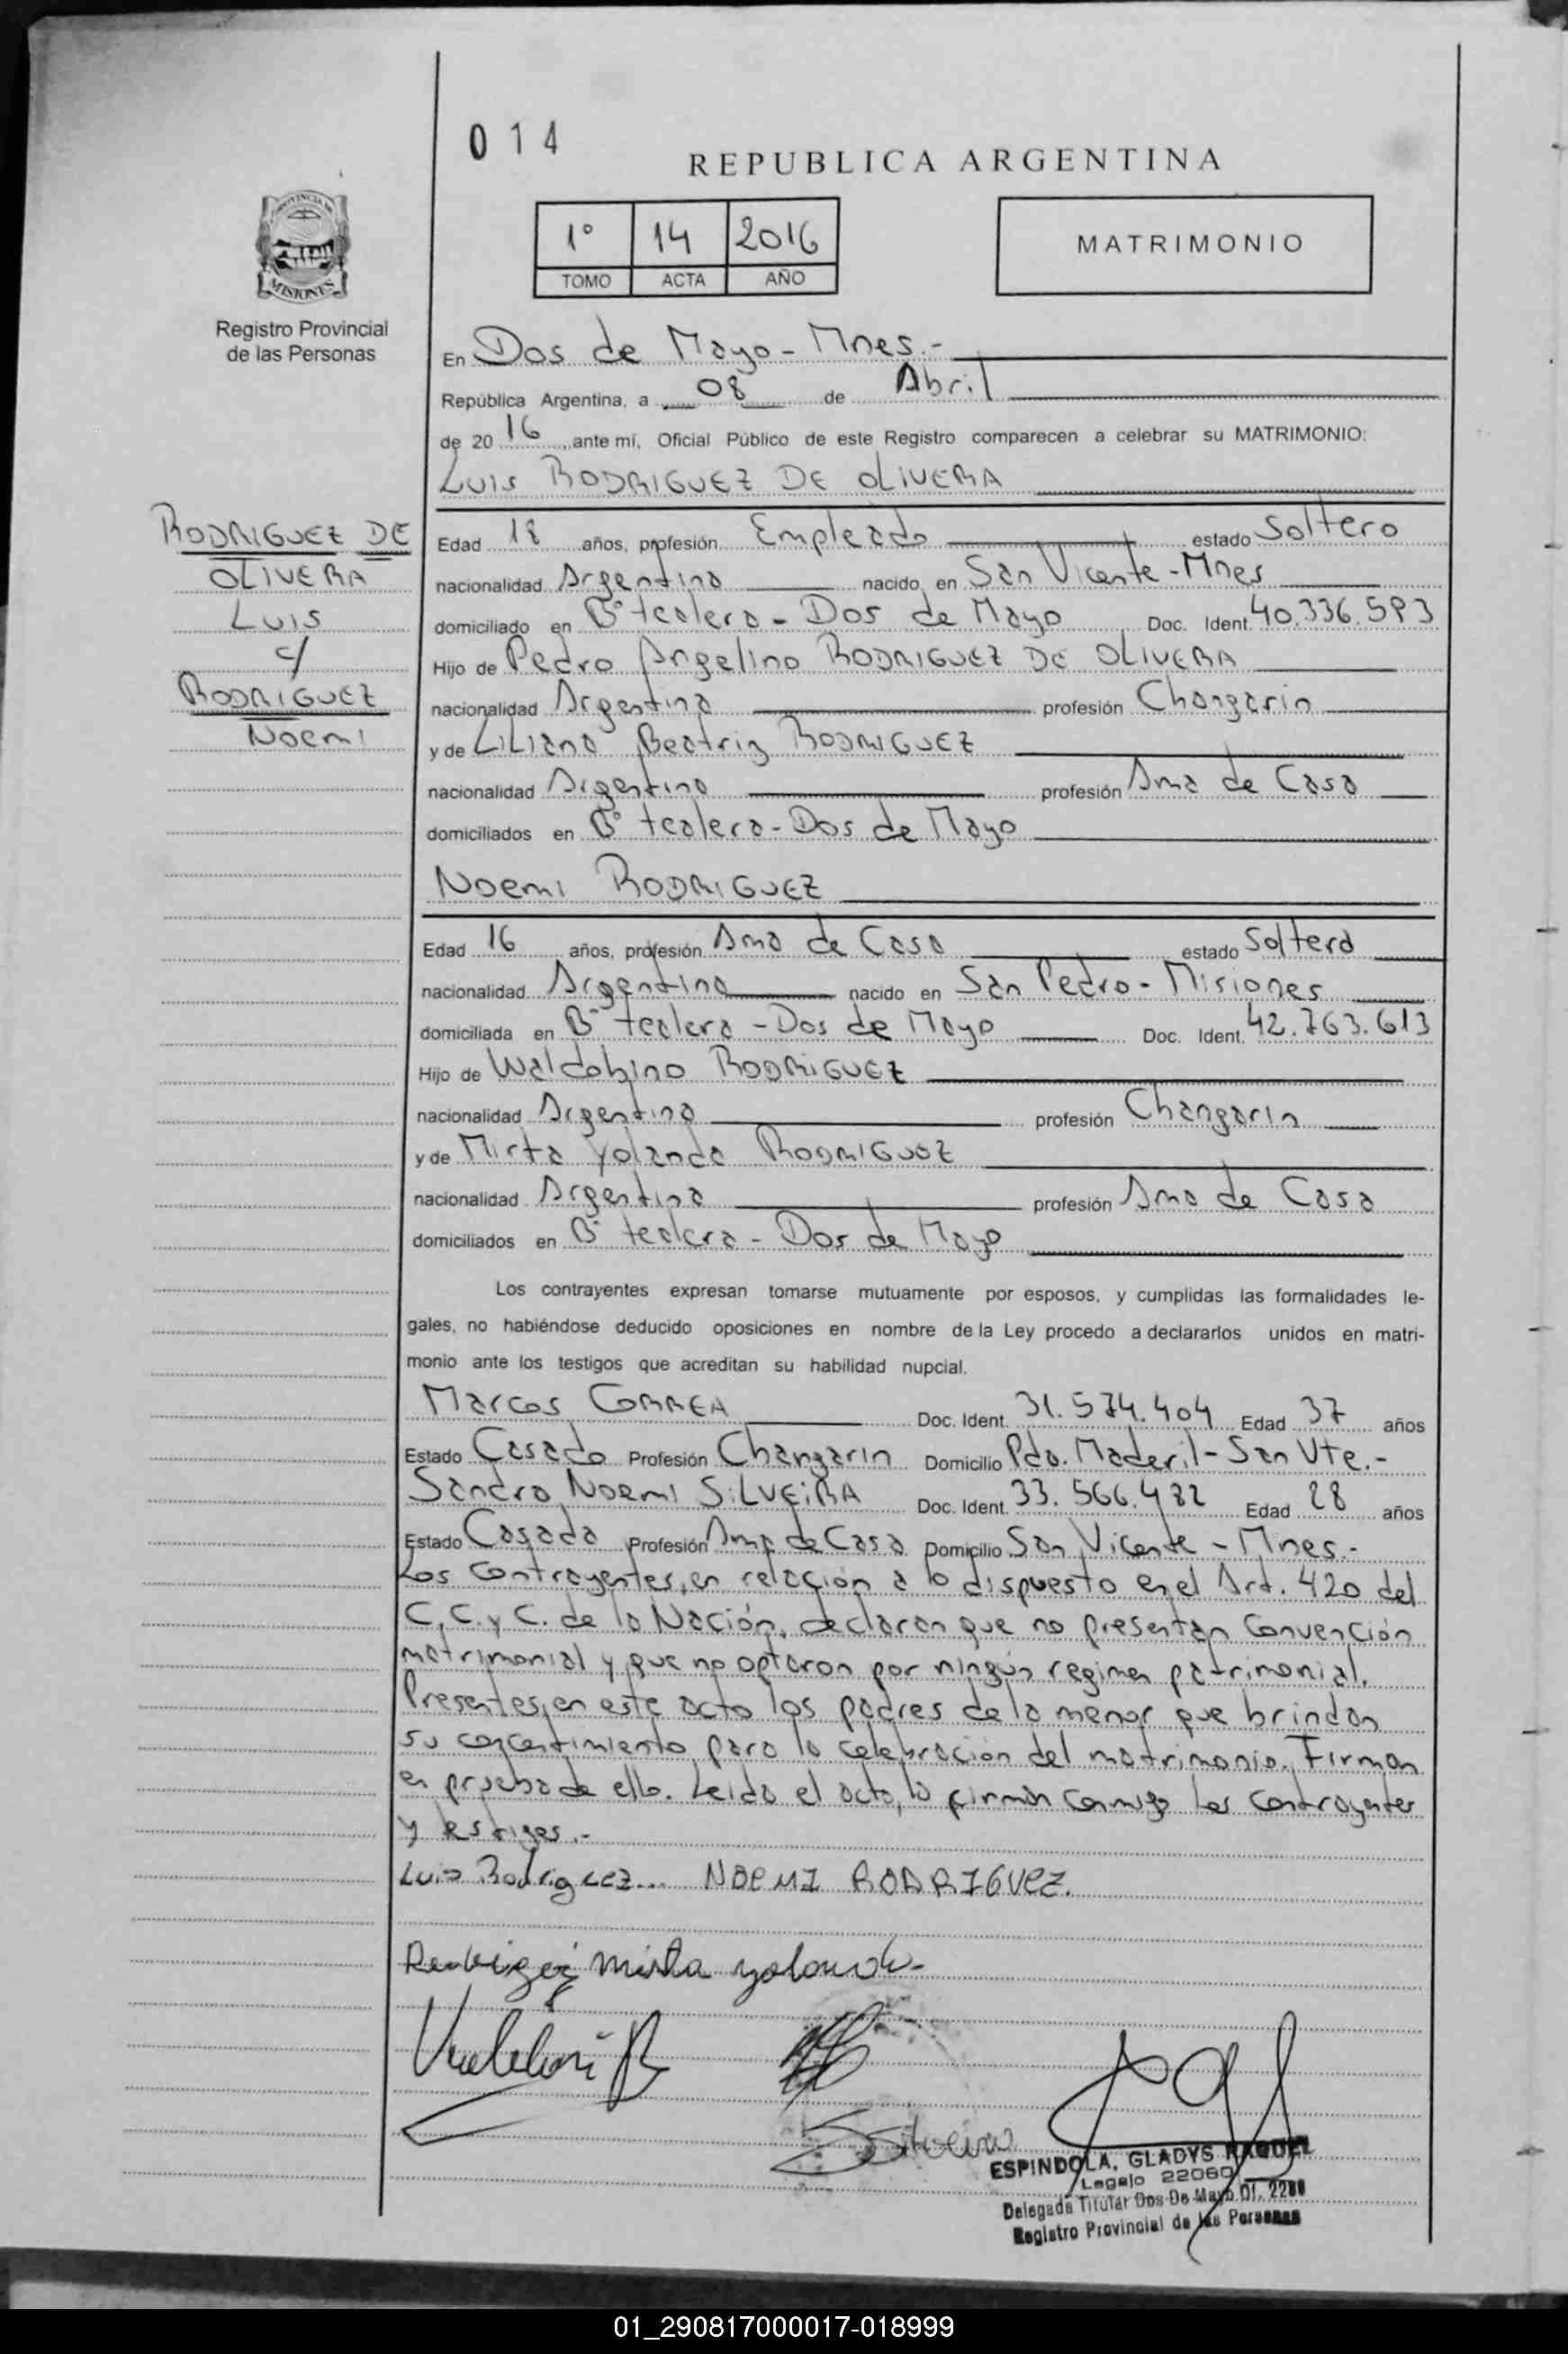 014
REPUBLICA ARGENTINA
1° 14 2016
TOMO ACTA AÑO
MATRIMONIO
PROVINCIA DE
MISIONES
Registro Provincial
de las Personas
En Dos de Mayo - Mnes.-
República Argentina, a 08 de Abril
de 2016, ante mí, Oficial Público de este Registro comparecen a celebrar su MATRIMONIO:
Luis RODRIGUEZ DE OLIVERA
RODRIGUEZ DE
OLIVERA
Luis
c/
RODRIGUEZ
Noemi
Edad 18 años, profesión Empleado estado Soltero
nacionalidad Argentina nacido en San Vicente - Mnes
domiciliado en B° tealera - Dos de Mayo Doc. Ident. 40.336.593
Hijo de Pedro Angelino RODRIGUEZ DE OLIVERA
nacionalidad Argentina profesión Changarin
y de LiLiana Beatriz RODRIGUEZ
nacionalidad Argentina profesión Ama de Casa
domiciliados en B° tealera - Dos de Mayo
Noemi RODRIGUEZ
Edad 16 años, profesión Ama de Casa estado Soltera
nacionalidad Argentina nacido en San Pedro - Misiones
domiciliada en B° tealera - Dos de Mayo Doc. Ident. 42.763.613
Hijo de Waldobino RODRIGUEZ
nacionalidad Argentina profesión Changarin
y de Mirta Yolanda RODRIGUEZ
nacionalidad Argentina profesión Ama de Casa
domiciliados en B° tealera - Dos de Mayo
Los contrayentes expresan tomarse mutuamente por esposos, y cumplidas las formalidades le-
gales, no habiéndose deducido oposiciones en nombre de la Ley procedo a declararlos unidos en matri-
monio ante los testigos que acreditan su habilidad nupcial.
Marcos CORREA Doc. Ident. 31.574.404 Edad 37 años
Estado Casado Profesión Changarin Domicilio Pdo. Maderil - San Vte.-
Sandra Noemi SiLVEiRA Doc. Ident. 33.566.482 Edad 28 años
Estado Casada Profesión Ama de Casa Domicilio San Vicente - Mnes.-
Los contrayentes, en relación a lo dispuesto en el Art. 420 del
C.C. y C. de la Nación, declaran que no presentan Convención
matrimonial y que no optaron por ningún regimen patrimonial.
Presentes en este acto los padres de la menor que brindan
su concentimiento para la celebración del matrimonio. Firman
en prueba de ello. Leida el acta, la firman conmigo los contrayentes
y testigos.-
Luis Rodriguez... NOEMI RODRIGUEZ.
mirta yolanda
Silveira
ESPINDOLA, GLADYS RAQUEL
Legajo 22060
Delegada Titular Dos De Mayo Of. 2280
Registro Provincial de las Personas
01_290817000017-018999